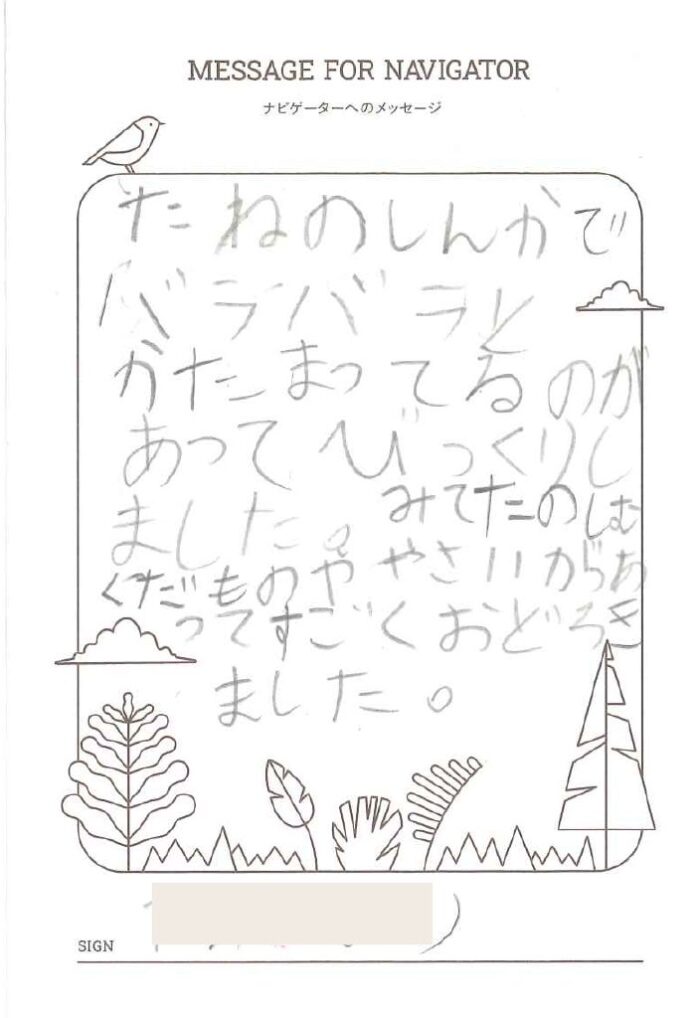 MESSAGE FOR NAVIGATOR
ナビゲーターへのメッセージ
たねのしんかで
バラバラと
かたまってるのが
あってびっくりし
ました。みてたのしむ
くだものややさいがあ
ってすごくおどろき
ました。
SIGN